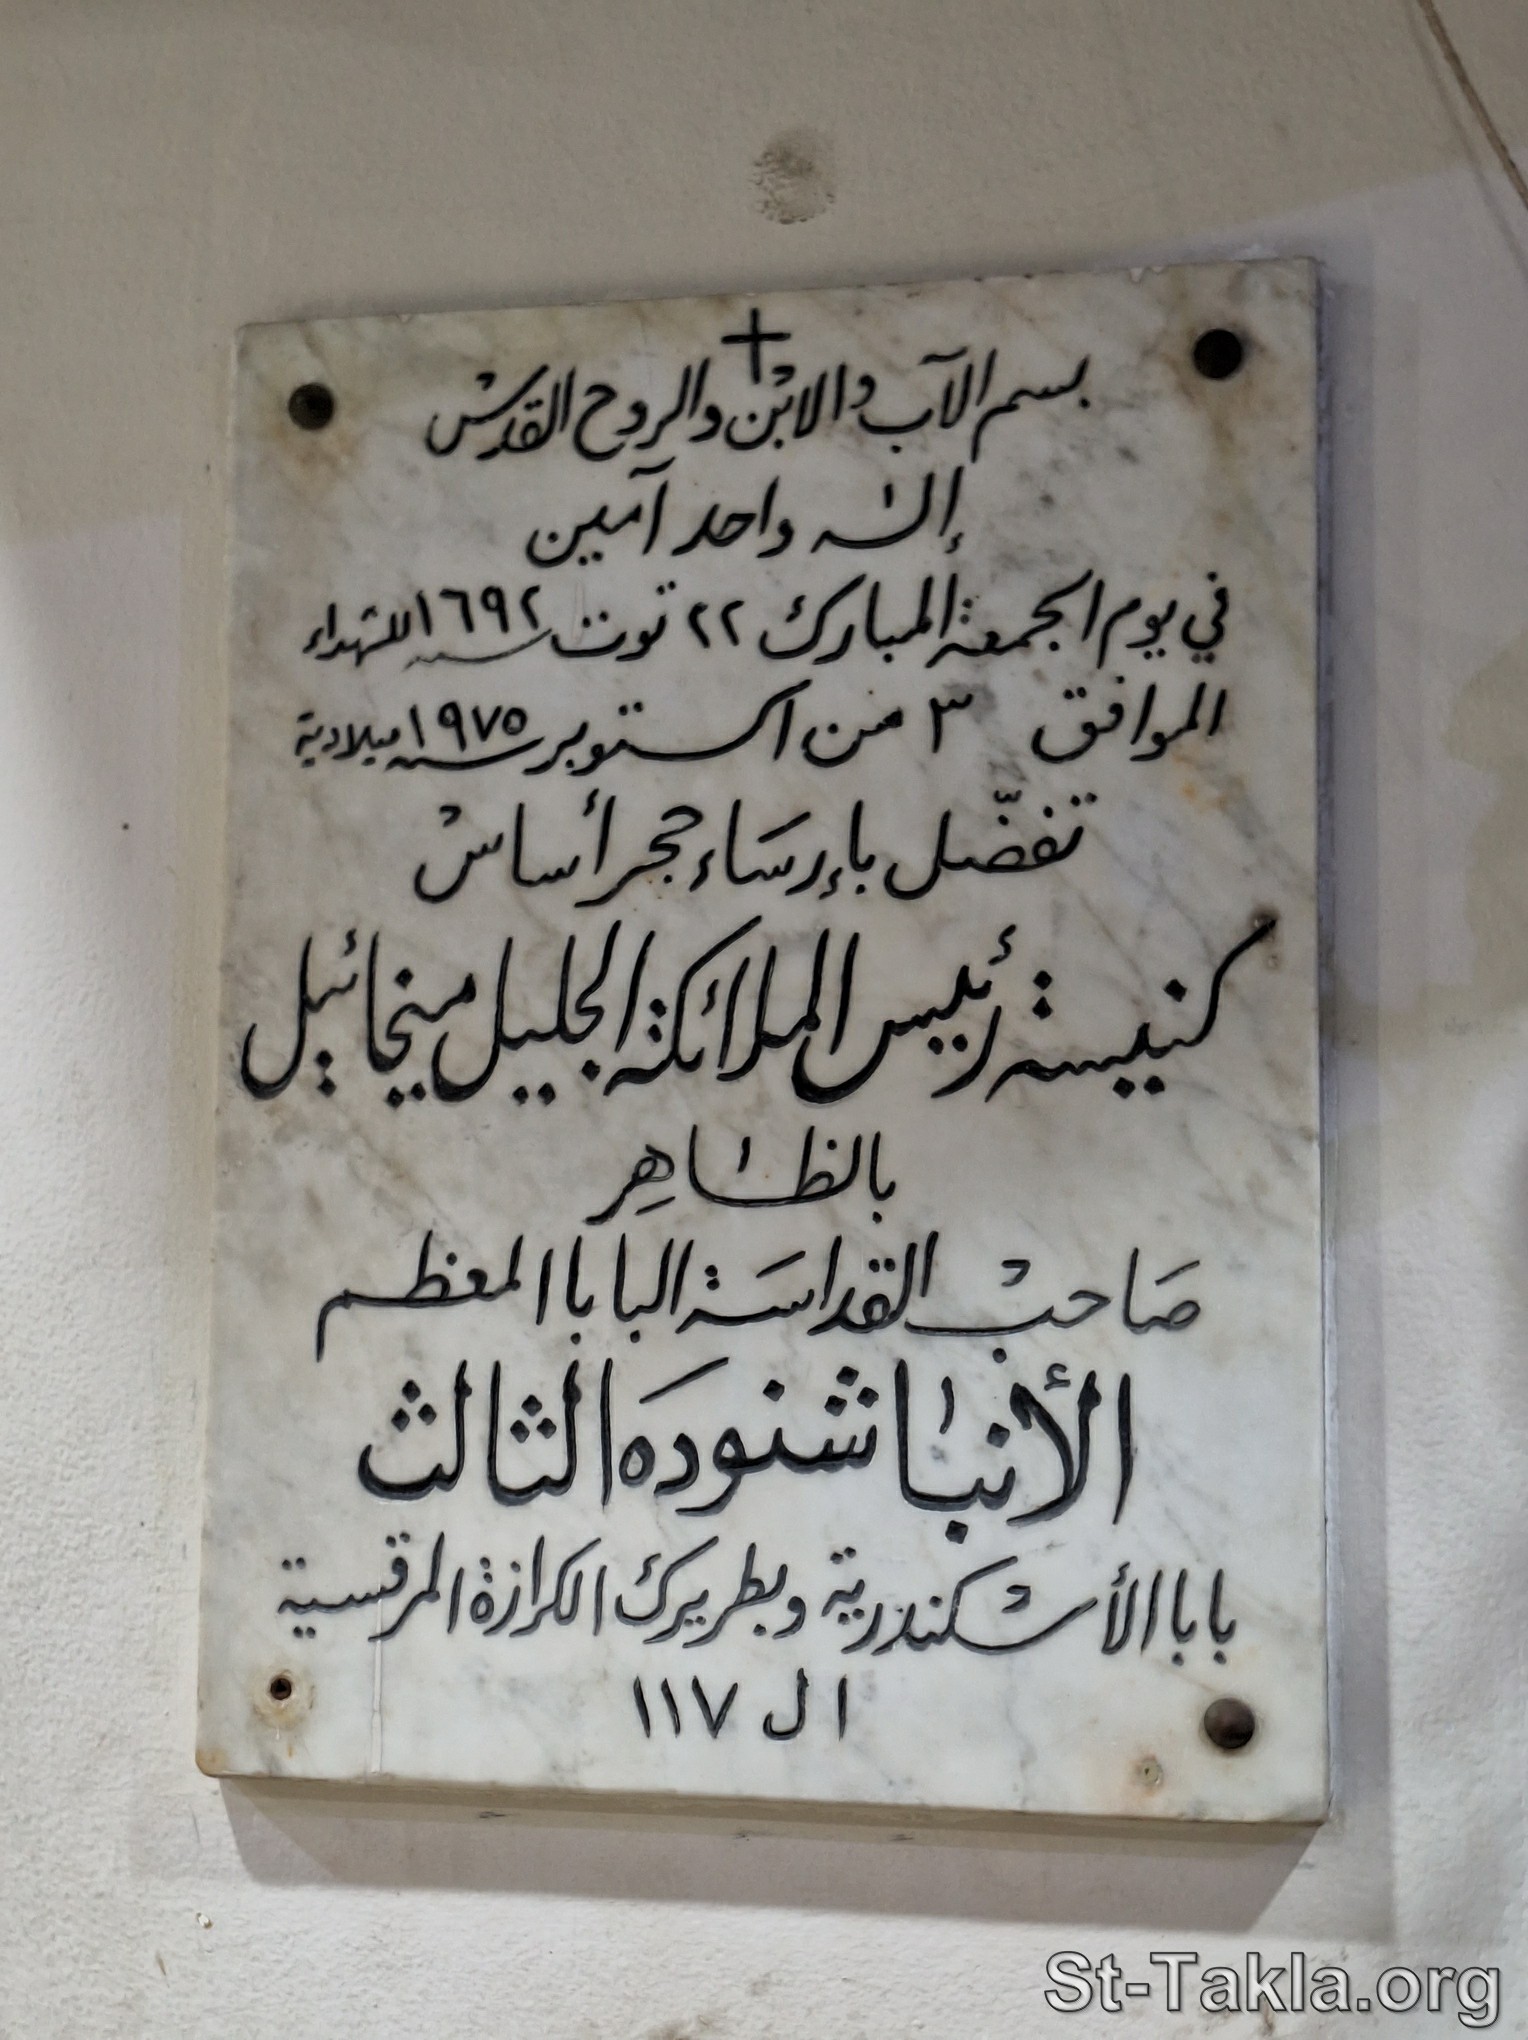 بسم الآب والابن والروح القدس
إله واحد آمين
في يوم الجمعة المبارك ٢٢ توت سنة ١٦٩٢ للشهداء
الموافق ٣ من اكتوبر سنة ١٩٧٥ ميلادية
تفضّل بإرساء حجر أساس
كنيسة رئيس الملائكة الجليل ميخائيل
بالظاهِر
صَاحب القداسَة البابا المعظم
الأنبا شنودَه الثالث
بابا الأسكندرية وبطريرك الكرازة المرقسية
ال ١١٧
St-Takla.org